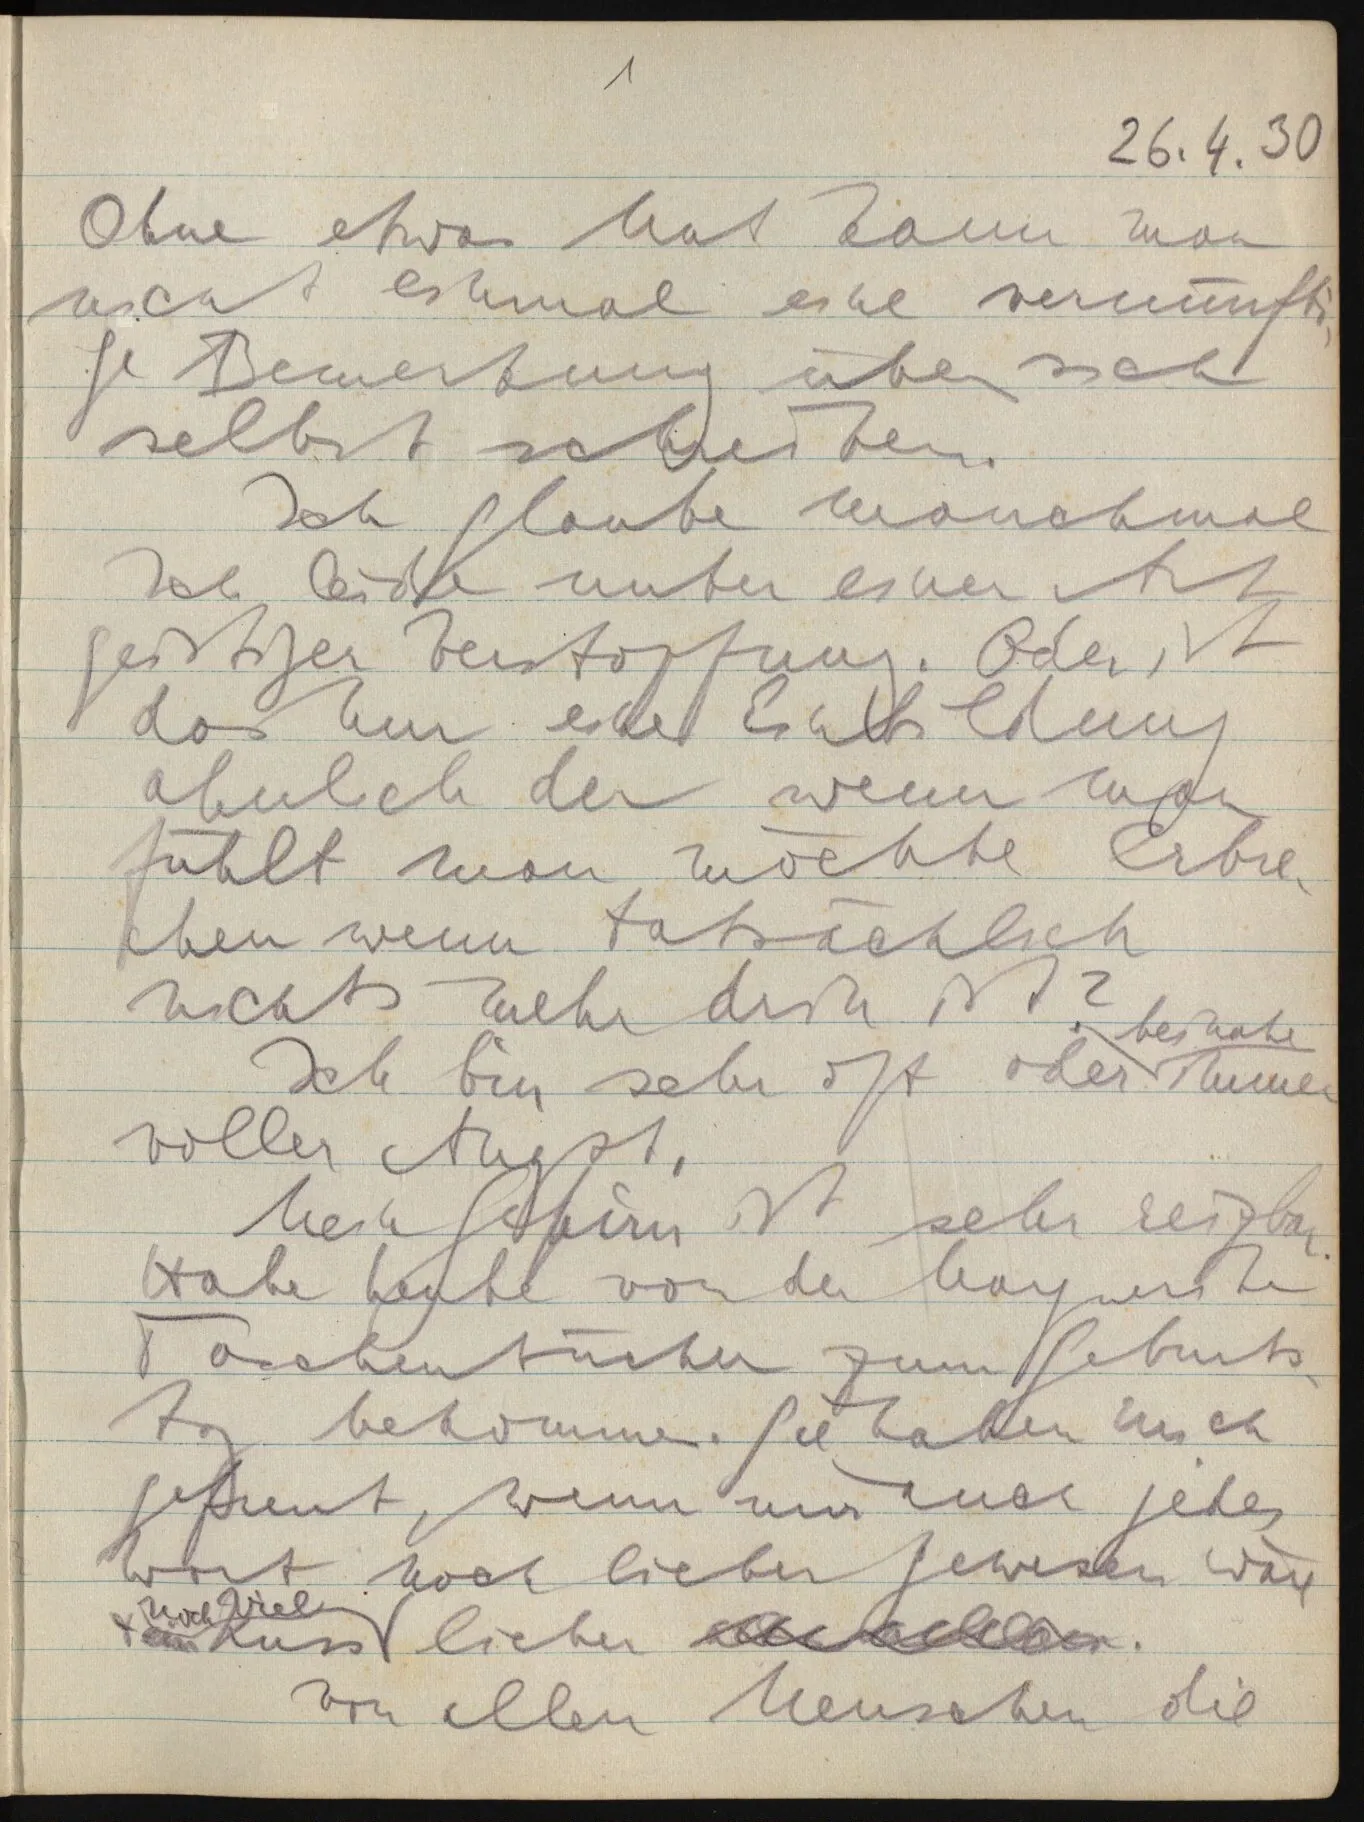 1
26.4.30
Ohne etwas Mut kann man
nicht einmal eine vernünfti-
ge Bemerkung über sich
selbst schreiben.
Ich glaube manchmal
Ich leide unter einer Art
geistiger Verstopfung. Oder ist
das nur eine Einbildung
ähnlich der wenn man
fühlt man möchte Erbre-
chen wenn tatsächlich
nichts mehr drin ist?
beinahe
Ich bin sehr oft oder immer
voller Angst.
Mein Gehirn ist sehr reizbar.
Habe heute von der Marguerite
Taschentücher zum Geburts-
tag bekommen. Sie haben mich
gefreut, wenn mir auch jedes
Wort noch lieber gewesen wäre
noch viel
+ ein Kuss lieber
Von allen Menschen die